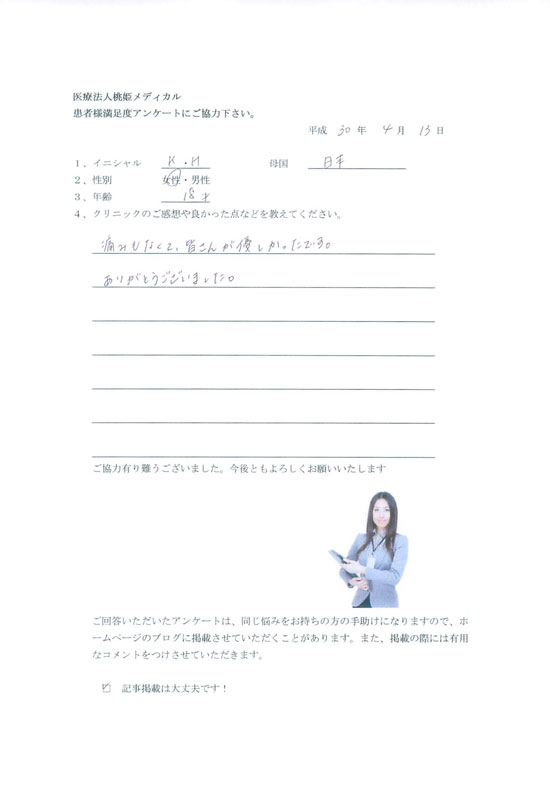 医療法人桃姫メディカル
患者様満足度アンケートにご協力下さい。
平成 30 年 4 月 13 日
1、イニシャル K・M 母国 日本
2、性別 女性・男性
3、年齢 18才
4、クリニックのご感想や良かった点などを教えてください。
痛みもなくて、皆さんが優しかったです。
ありがとうございました。
ご協力有り難うございました。今後ともよろしくお願いいたします
ご回答いただいたアンケートは、同じ悩みをお持ちの方の手助けになりますので、ホ
ームページのブログに掲載させていただくことがあります。また、掲載の際には有用
なコメントをつけさせていただきます。
☑ 記事掲載は大丈夫です！